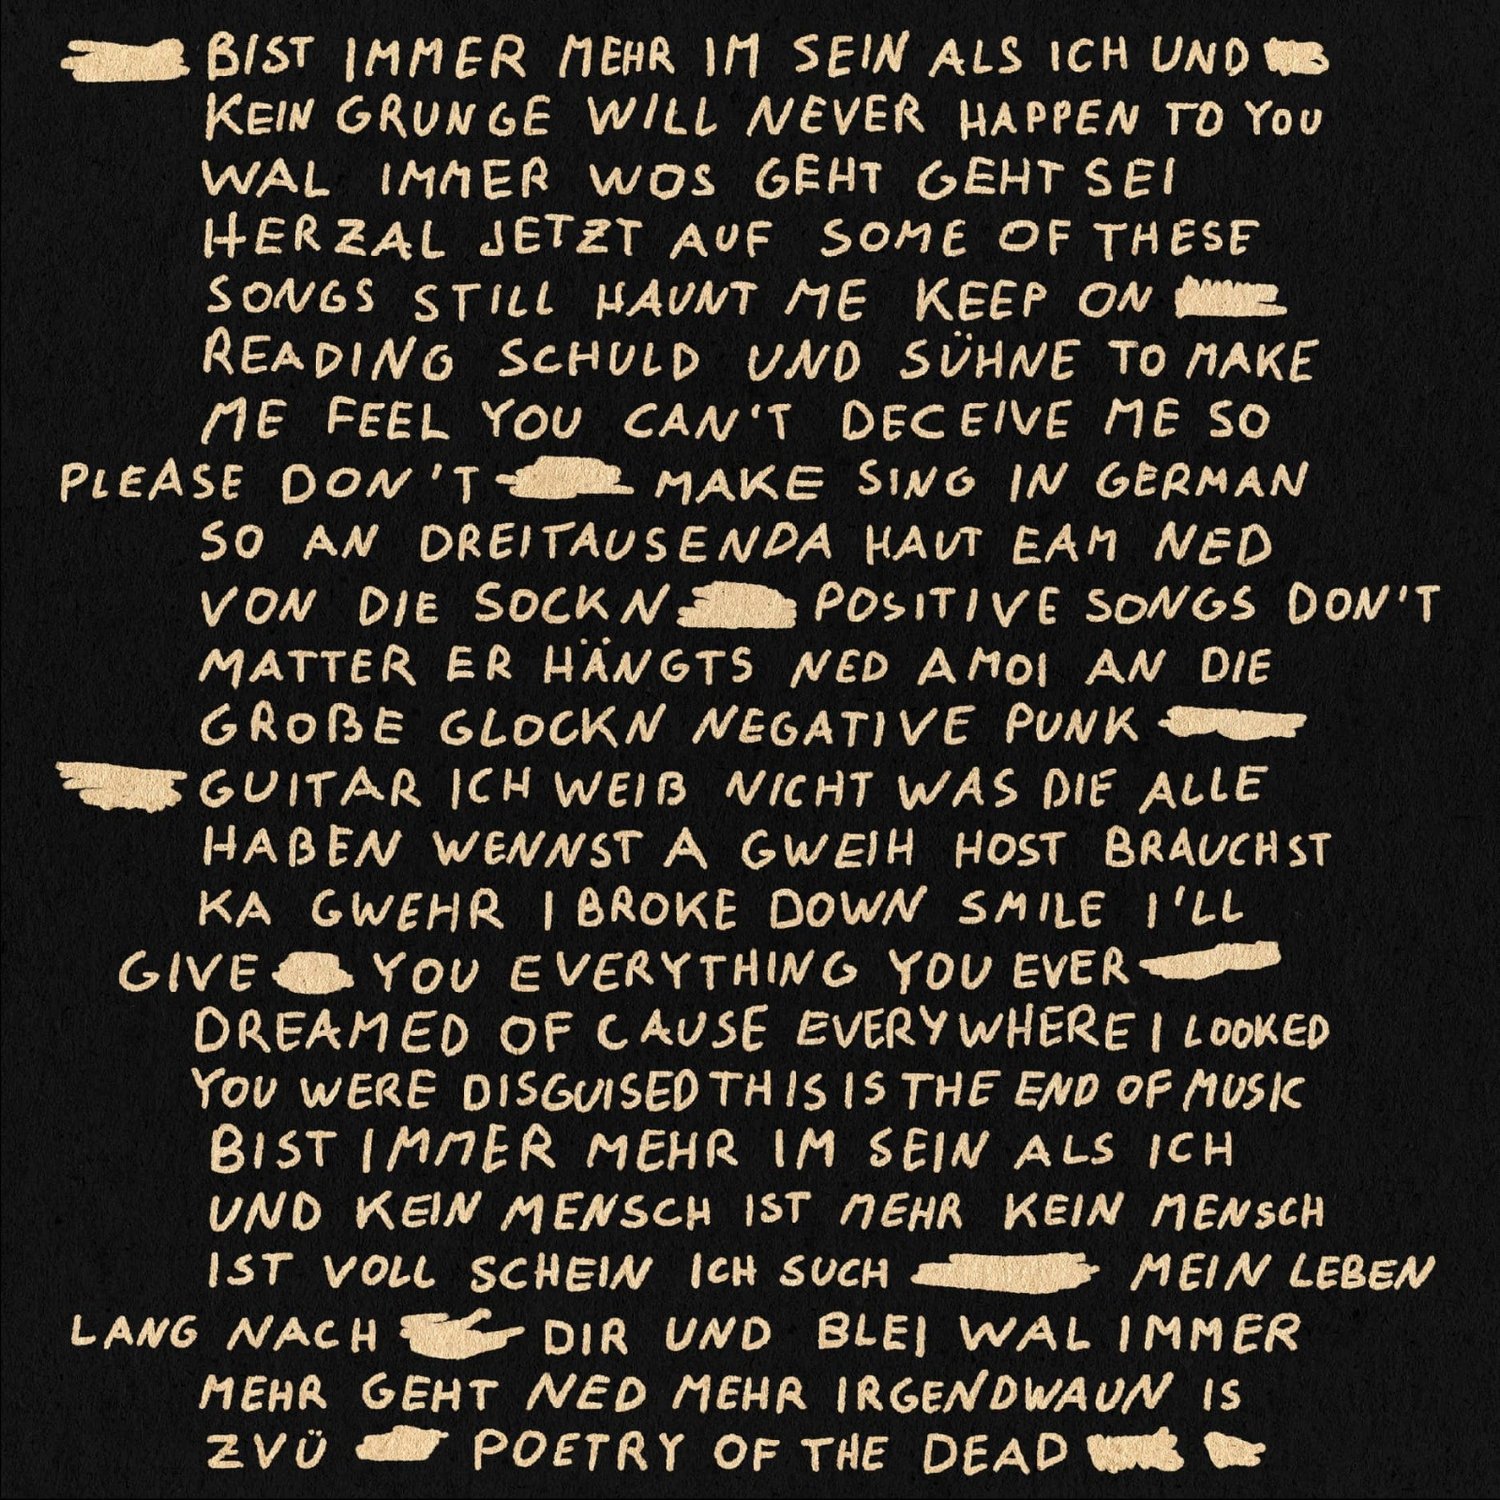 BIST IMMER MEHR IM SEIN ALS ICH UND
KEIN GRUNGE WILL NEVER HAPPEN TO YOU
WAL IMMER WOS GEHT GEHT SEI
HERZAL JETZT AUF SOME OF THESE
SONGS STILL HAUNT ME KEEP ON
READING SCHULD UND SÜHNE TO MAKE
ME FEEL YOU CAN'T DECEIVE ME SO
PLEASE DON'T MAKE SING IN GERMAN
SO AN DREITAUSENDA HAUT EAM NED
VON DIE SOCKN POSITIVE SONGS DON'T
MATTER ER HÄNGTS NED AMOI AN DIE
GROßE GLOCKN NEGATIVE PUNK
GUITAR ICH WEIß NICHT WAS DIE ALLE
HABEN WENNST A GWEIH HOST BRAUCHST
KA GWEHR I BROKE DOWN SMILE I'LL
GIVE YOU EVERYTHING YOU EVER
DREAMED OF CAUSE EVERYWHERE I LOOKED
YOU WERE DISGUISED THIS IS THE END OF MUSIC
BIST IMMER MEHR IM SEIN ALS ICH
UND KEIN MENSCH IST MEHR KEIN MENSCH
IST VOLL SCHEIN ICH SUCH MEIN LEBEN
LANG NACH DIR UND BLEI WAL IMMER
MEHR GEHT NED MEHR IRGENDWAUN IS
ZVÜ POETRY OF THE DEAD